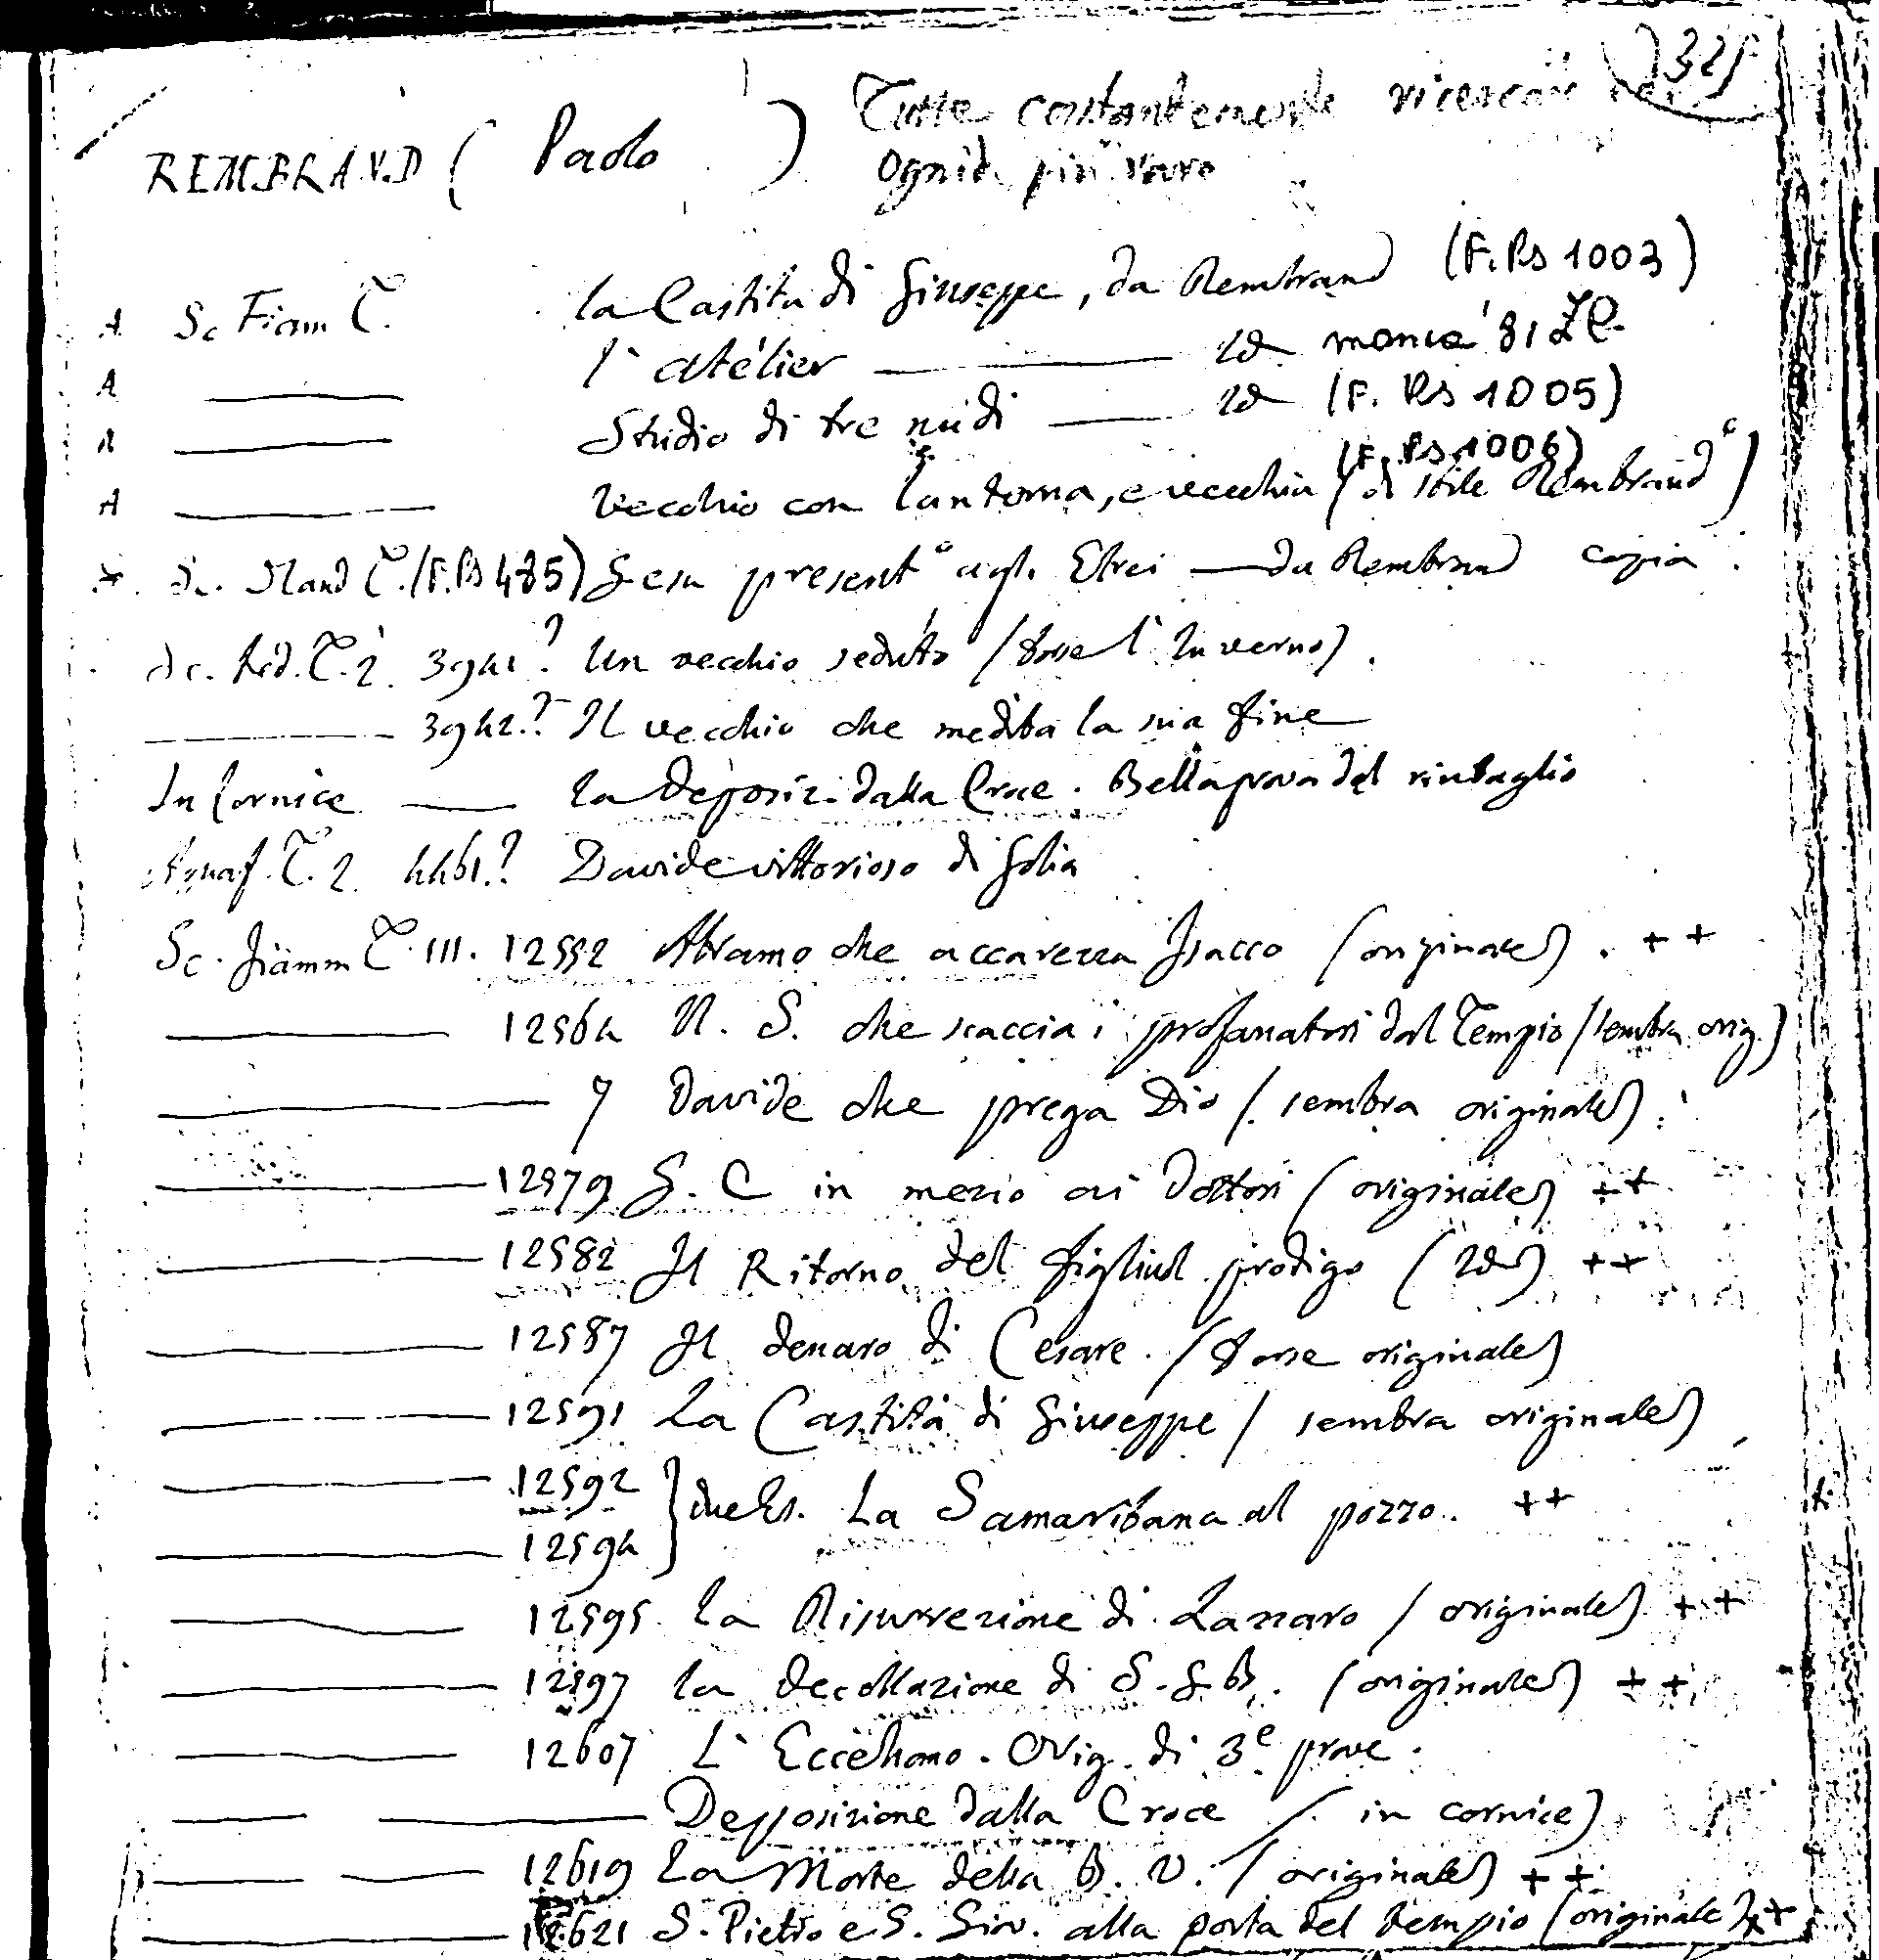 325
REMBRAND ( Paolo ) Tutte costantemente ricercate
ogni dì più rare
A Sc Fiam T. la Castità di Giuseppe, da Rembrand (F. Rs 1003)
A l'atélier id manca '81
A Studio di tre nudi id (F. Rs 1005)
(F. Rs 1006)
A Vecchio con lanterna, e vecchia (di stile Rembrand°)
Oland T. (F. Rs 485) Gesù present° agli Ebrei da Rembrand copia
T. 2. 3941? Un vecchio seduto (forse l'Inverno).
3942? Il vecchio che medita la sua fine
In Cornice la Deposiz. dalla Croce. Bella prova del rintaglio
T. 2. 4461? Davide vittorioso di Golia
Sc. fiamm T. III. 12552 Abramo che accarezza Isacco (originale). ++
12564 N. S. che scaccia i profanatori dal Tempio (sembra orig.)
7 Davide che prega Dio (sembra originale).
12579 G. C in mezzo ai Dottori (originale) ++
12582 Il Ritorno del figliuol prodigo (id) ++
12587 Il denaro di Cesare. (forse originale)
12591 La Castità di Giuseppe (sembra originale)
12592
} due Es. La Samaritana al pozzo. ++
12594
12595 la Risurrezione di Lazzaro (originale) ++
12597 la decollazione di S. G. B. (originale) ++
12607 L'Eccehomo. Orig. di 3e prove.
Depposizione dalla Croce (in cornice)
12619 La Morte della B. V. (originale) ++
12621 S. Pietro e S. Giov. alla porta del tempio (originale) ++